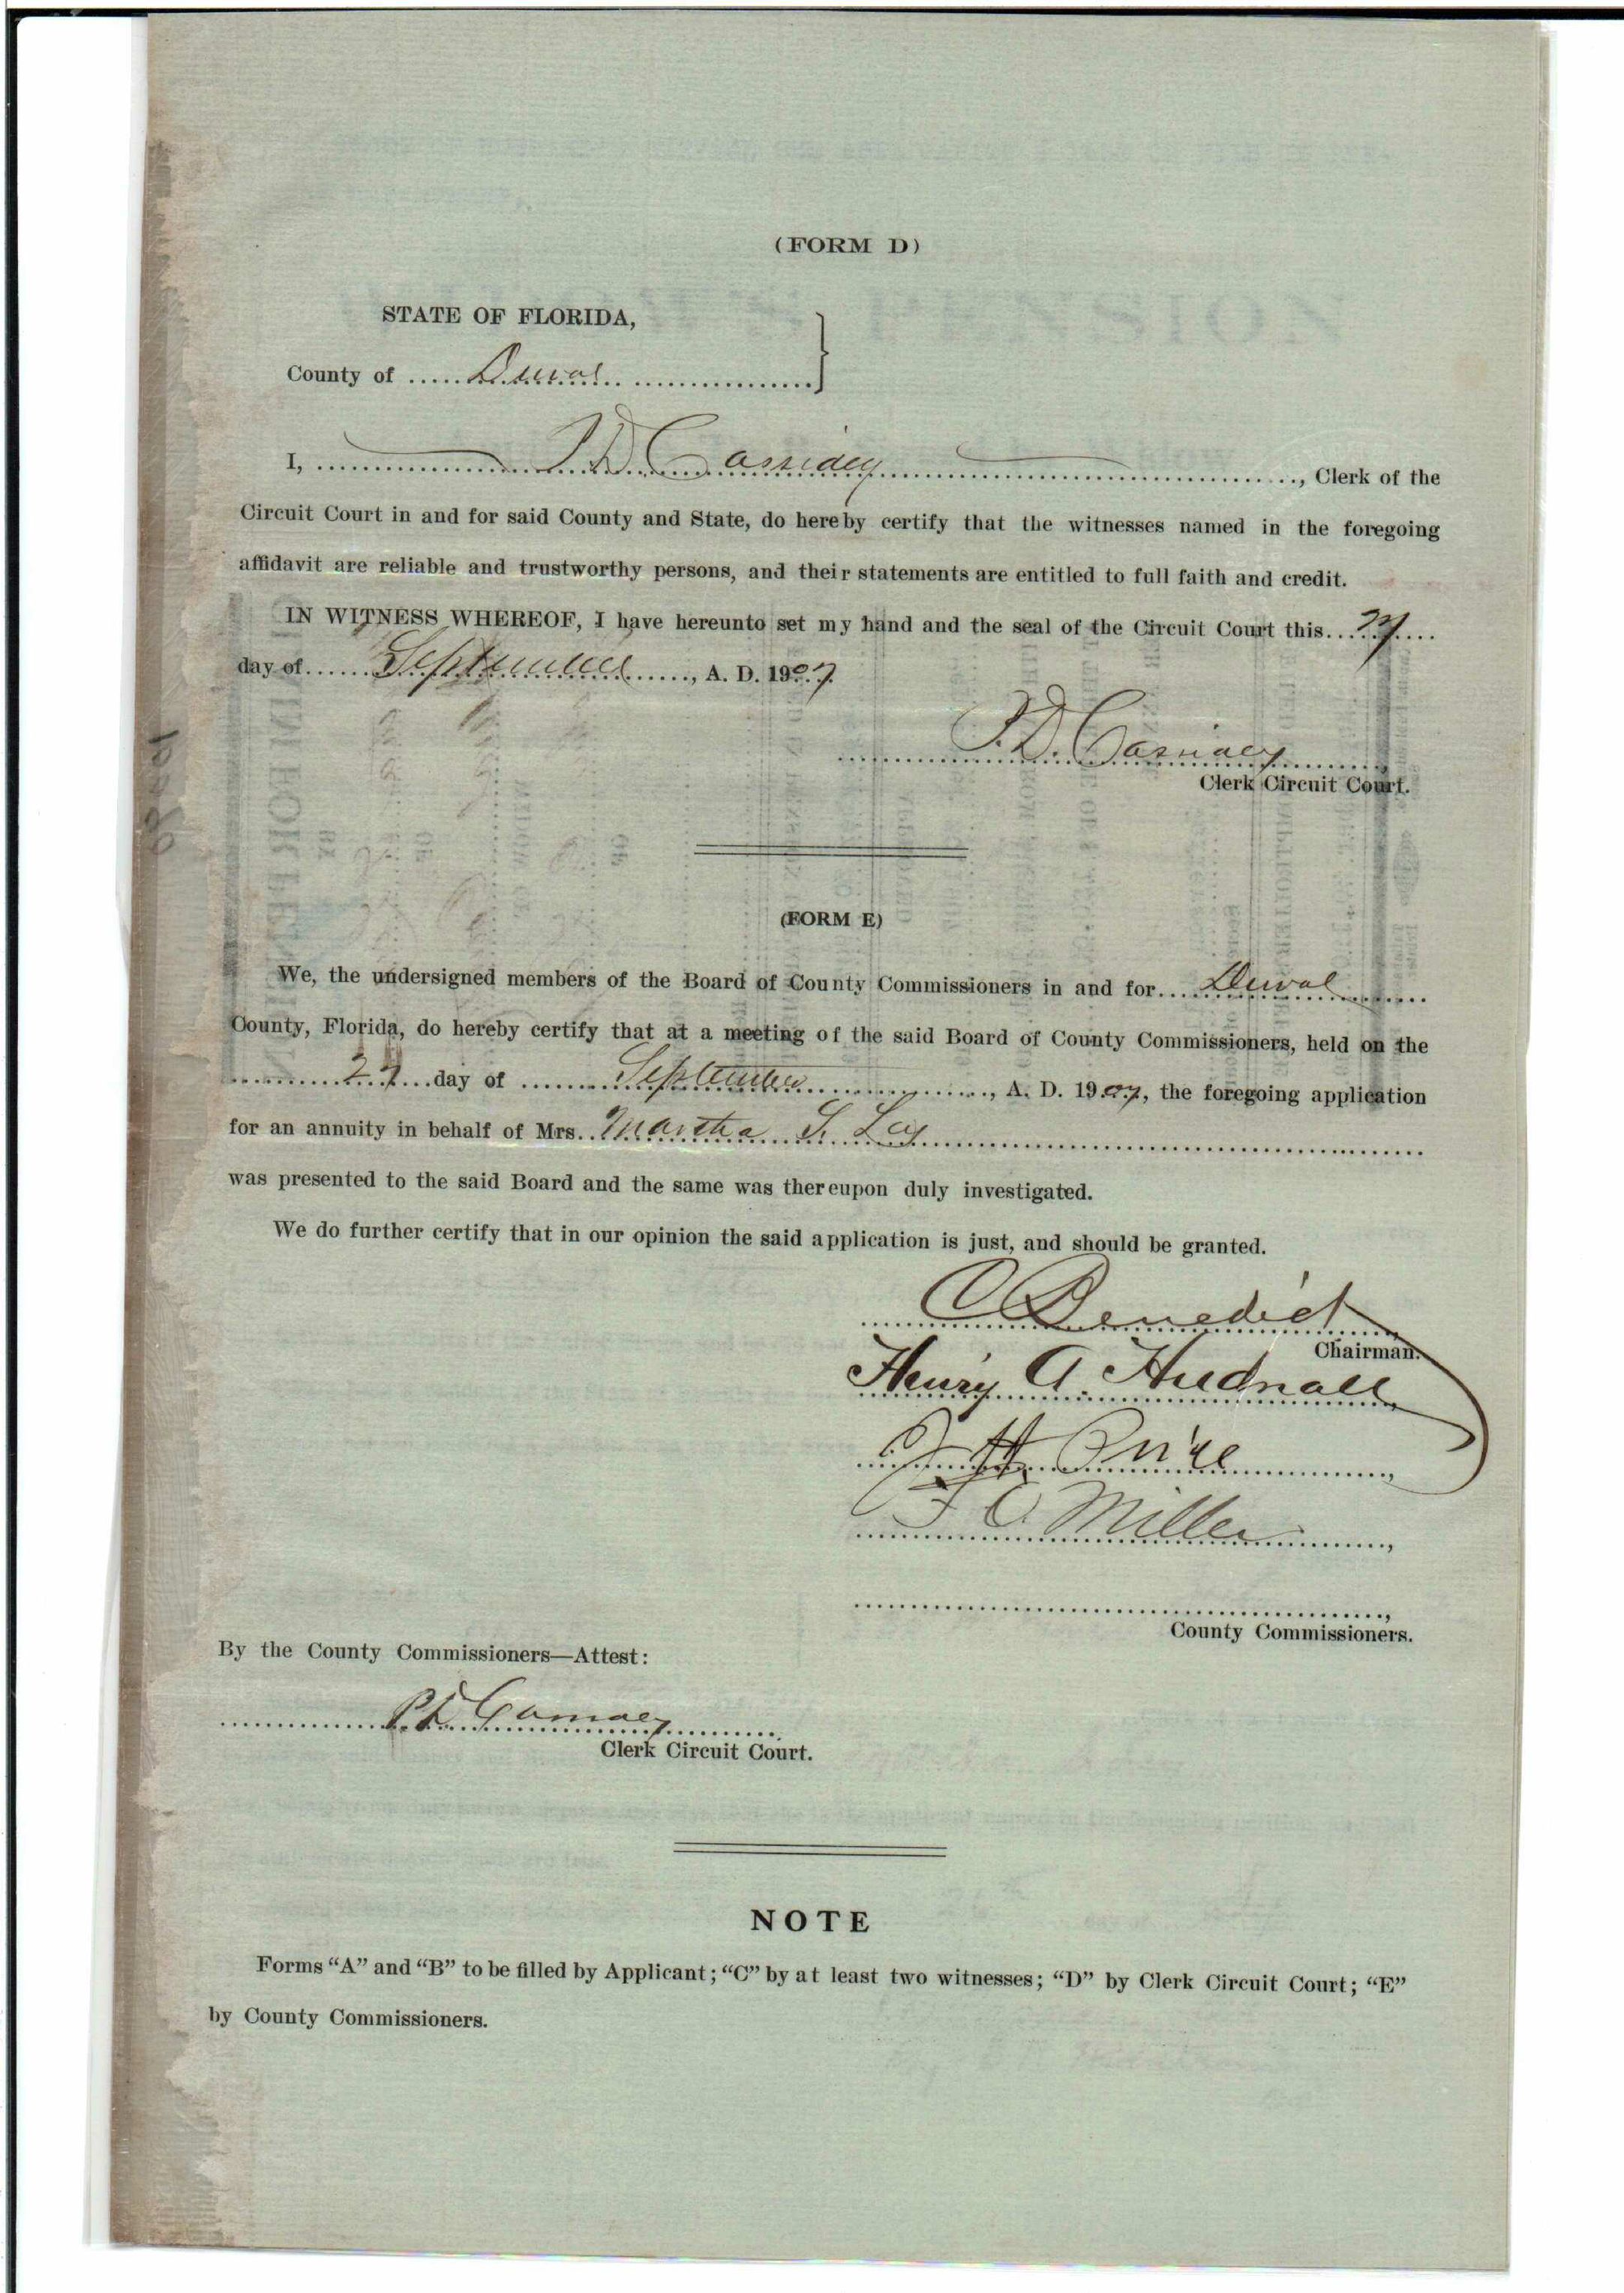 (FORM D)
STATE OF FLORIDA,
County of Duval
I, P. D. Cassidey, Clerk of the
Circuit Court in and for said County and State, do hereby certify that the witnesses named in the foregoing
affidavit are reliable and trustworthy persons, and their statements are entitled to full faith and credit.
IN WITNESS WHEREOF, I have hereunto set my hand and the seal of the Circuit Court this 27
day of September, A. D. 1907.
P. D. Cassidey
Clerk Circuit Court.
(FORM E)
We, the undersigned members of the Board of County Commissioners in and for Duval
County, Florida, do hereby certify that at a meeting of the said Board of County Commissioners, held on the
27 day of September, A. D. 1907, the foregoing application
for an annuity in behalf of Mrs. Martha
was presented to the said Board and the same was thereupon duly investigated.
We do further certify that in our opinion the said application is just, and should be granted.
C Benedict
Chairman.
Henry A. Hudnall
H. Price
Miller
County Commissioners.
By the County Commissioners—Attest:
P D Cassidey
Clerk Circuit Court.
NOTE
Forms "A" and "B" to be filled by Applicant; "C" by at least two witnesses; "D" by Clerk Circuit Court; "E"
by County Commissioners.